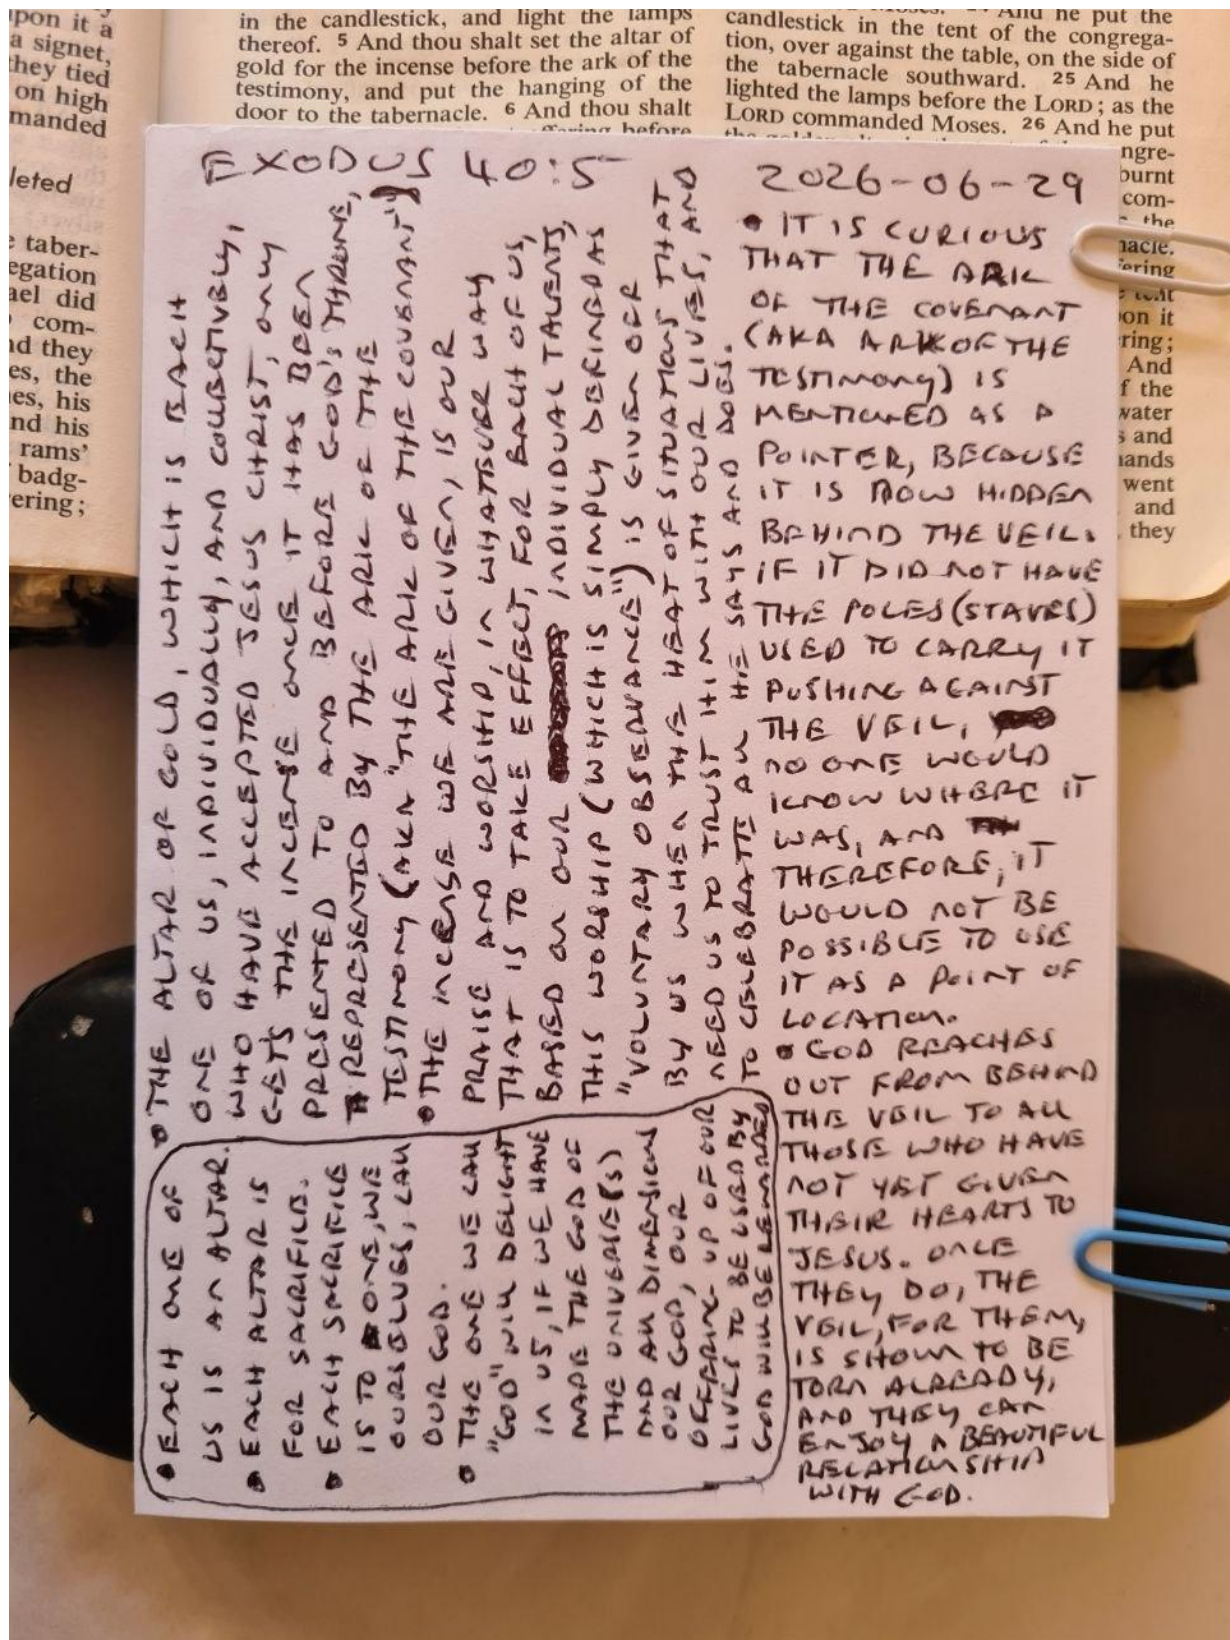 pon it a
a signet,
they tied
on high
manded
leted
taber-
egation
ael did
com-
nd they
es, the
es, his
nd his
rams'
badg-
ering;
in the candlestick, and light the lamps
thereof. 5 And thou shalt set the altar of
gold for the incense before the ark of the
testimony, and put the hanging of the
door to the tabernacle. 6 And thou shalt
before
Moses. 24 And he put the
candlestick in the tent of the congrega-
tion, over against the table, on the side of
the tabernacle southward. 25 And he
lighted the lamps before the LORD; as the
LORD commanded Moses. 26 And he put
ngre-
burnt
com-
the
nacle.
fering
tent
on it
ring;
And
f the
water
s and
hands
went
and
they
EXODUS 40:5
2026-06-29
• THE ALTAR OF GOLD, WHICH IS EACH
ONE OF US, INDIVIDUALLY, AND COLLECTIVELY,
WHO HAVE ACCEPTED JESUS CHRIST, ONLY
GETS THE INCENSE ONCE IT HAS BEEN
PRESENTED TO AND BEFORE GOD'S THRONE,
REPRESENTED BY THE ARK OF THE
TESTIMONY (AKA "THE ARK OF THE COVENANT")
• THE INCENSE WE ARE GIVEN, IS OUR
PRAISE AND WORSHIP, IN WHATSOEVER WAY
THAT IS TO TAKE EFFECT, FOR EACH OF US,
BASED ON OUR INDIVIDUAL TALENTS,
THIS WORSHIP (WHICH IS SIMPLY DEFINED AS
"VOLUNTARY OBSERVANCE") IS GIVEN OFF
BY US WHEN THE HEAT OF SITUATIONS THAT
NEED US TO TRUST HIM WITH OUR LIVES, AND
TO CELEBRATE ALL HE SAYS AND DOES.
• EACH ONE OF
US IS AN ALTAR.
• EACH ALTAR IS
FOR SACRIFICE.
• EACH SACRIFICE
IS TO ONE, WE
OURSELVES, CALL
OUR GOD.
• THE ONE WE CALL
"GOD" WILL DELIGHT
IN US, IF WE HAVE
MADE THE GOD OF
THE UNIVERSE(S)
AND ALL DIMENSIONS
OUR GOD, OUR
OFFERING UP OF OUR
LIVES TO BE USED BY
GOD WILL BE REWARDED
• IT IS CURIOUS
THAT THE ARK
OF THE COVENANT
(AKA ARK OF THE
TESTIMONY) IS
MENTIONED AS A
POINTER, BECAUSE
IT IS NOW HIDDEN
BEHIND THE VEIL.
IF IT DID NOT HAVE
THE POLES (STAVES)
USED TO CARRY IT
PUSHING AGAINST
THE VEIL,
NO ONE WOULD
KNOW WHERE IT
WAS, AND
THEREFORE, IT
WOULD NOT BE
POSSIBLE TO USE
IT AS A POINT OF
LOCATION.
• GOD REACHES
OUT FROM BEHIND
THE VEIL TO ALL
THOSE WHO HAVE
NOT YET GIVEN
THEIR HEARTS TO
JESUS. ONCE
THEY DO, THE
VEIL, FOR THEM,
IS SHOWN TO BE
TORN ALREADY,
AND THEY CAN
ENJOY A BEAUTIFUL
RELATIONSHIP
WITH GOD.